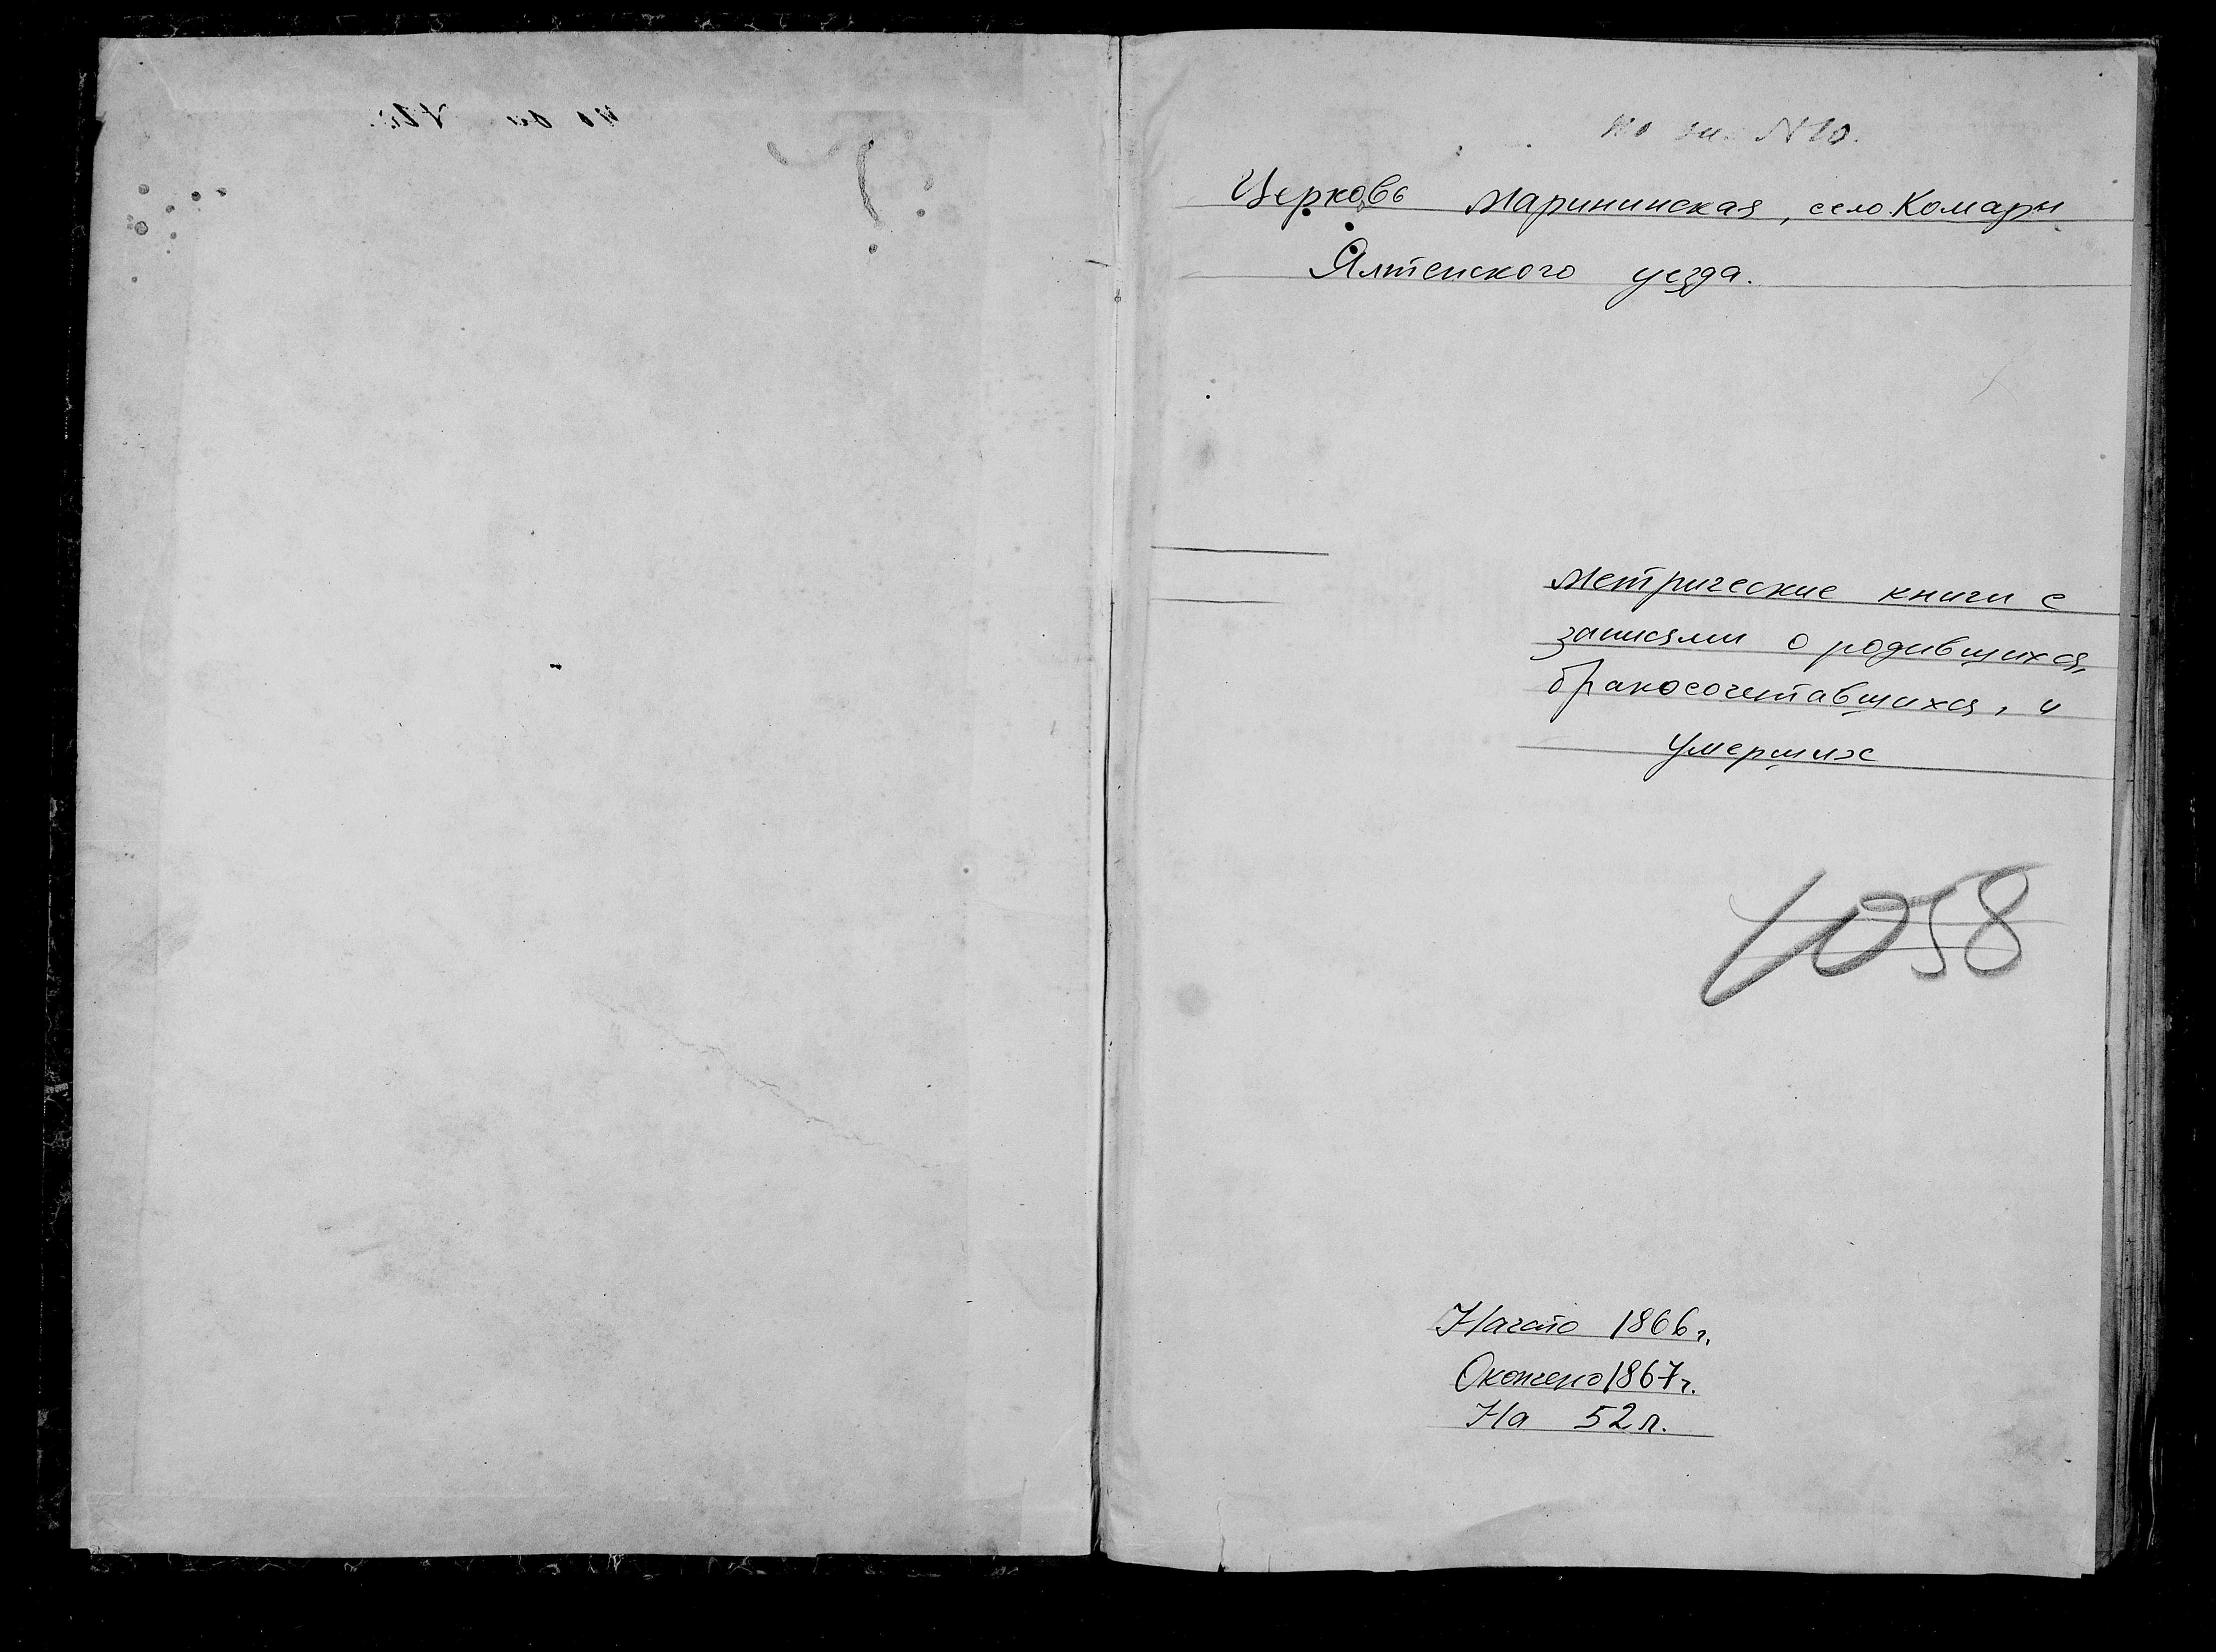 по оп. N 10.
Церковь Марининская, село Комары
Ялтенского уезда.
Метрические книги с
записями о родившихся,
бракосочетавшихся, и
умерших
1058
Начато 1866 г.
Окончено 1867 г.
На 52 л.